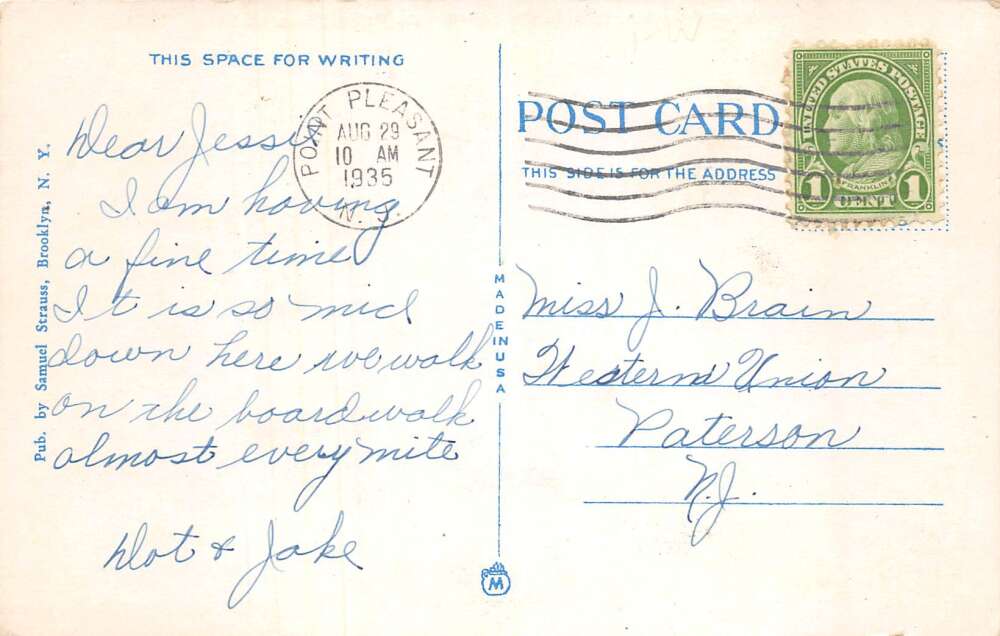 THIS SPACE FOR WRITING
Dear Jessie
I am having
a fine time
It is so nice
down here we walk
on the boardwalk
almost every nite
Dot & Jake
Pub. by Samuel Strauss, Brooklyn, N. Y.
POINT PLEASANT
AUG 29
10 AM
1935
N. J.
MADE IN USA
M
POST CARD
THIS SIDE IS FOR THE ADDRESS
UNITED STATES POSTAGE
FRANKLIN
1 CENT 1
Miss J. Brain
Western Union
Paterson
N.J.